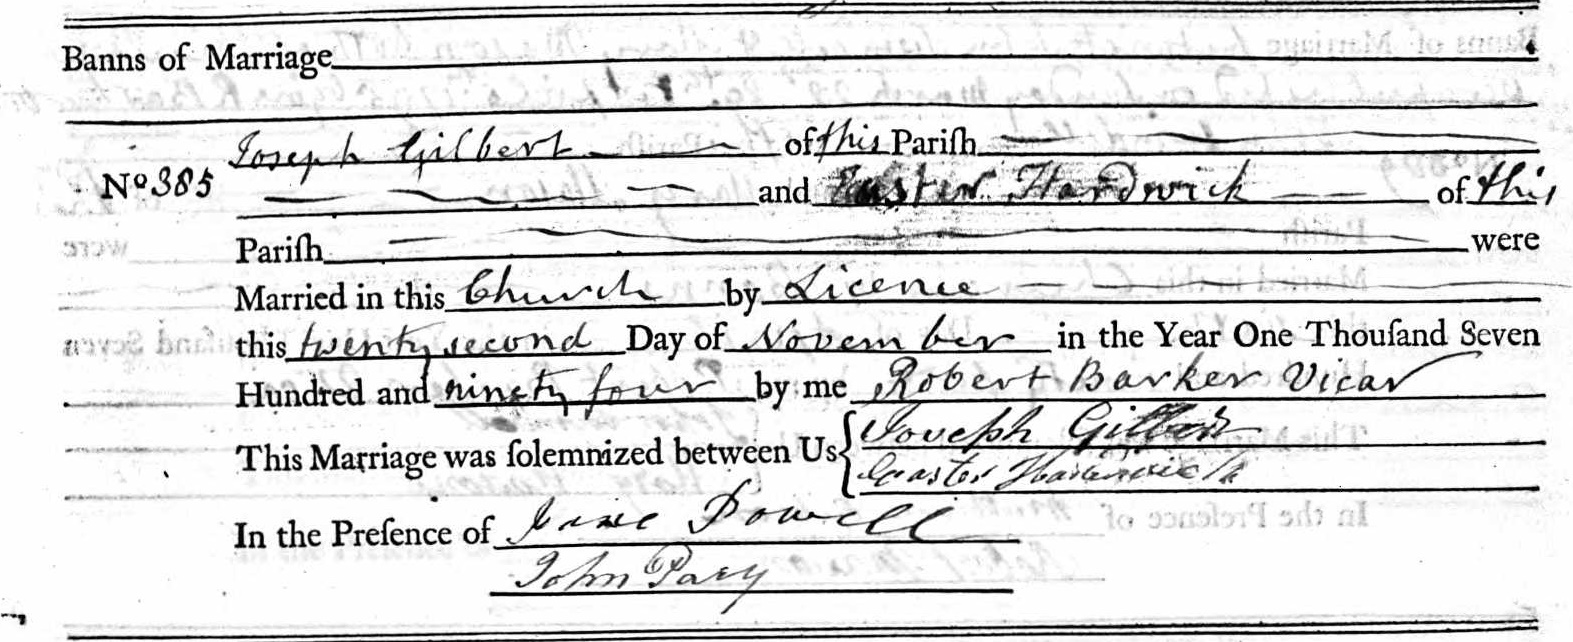 Banns of Marriage
Joseph Gilbert of this Pariſh
No 385
and Easter Hardwick of this
Pariſh were
Married in this Church by Licence
this twenty second Day of November in the Year One Thouſand Seven
Hundred and ninety four by me Robert Barker Vicar
This Marriage was ſolemnized between Us Joveph Gilbert
Easter Hardwick
In the Preſence of Jane Powell
John Pary